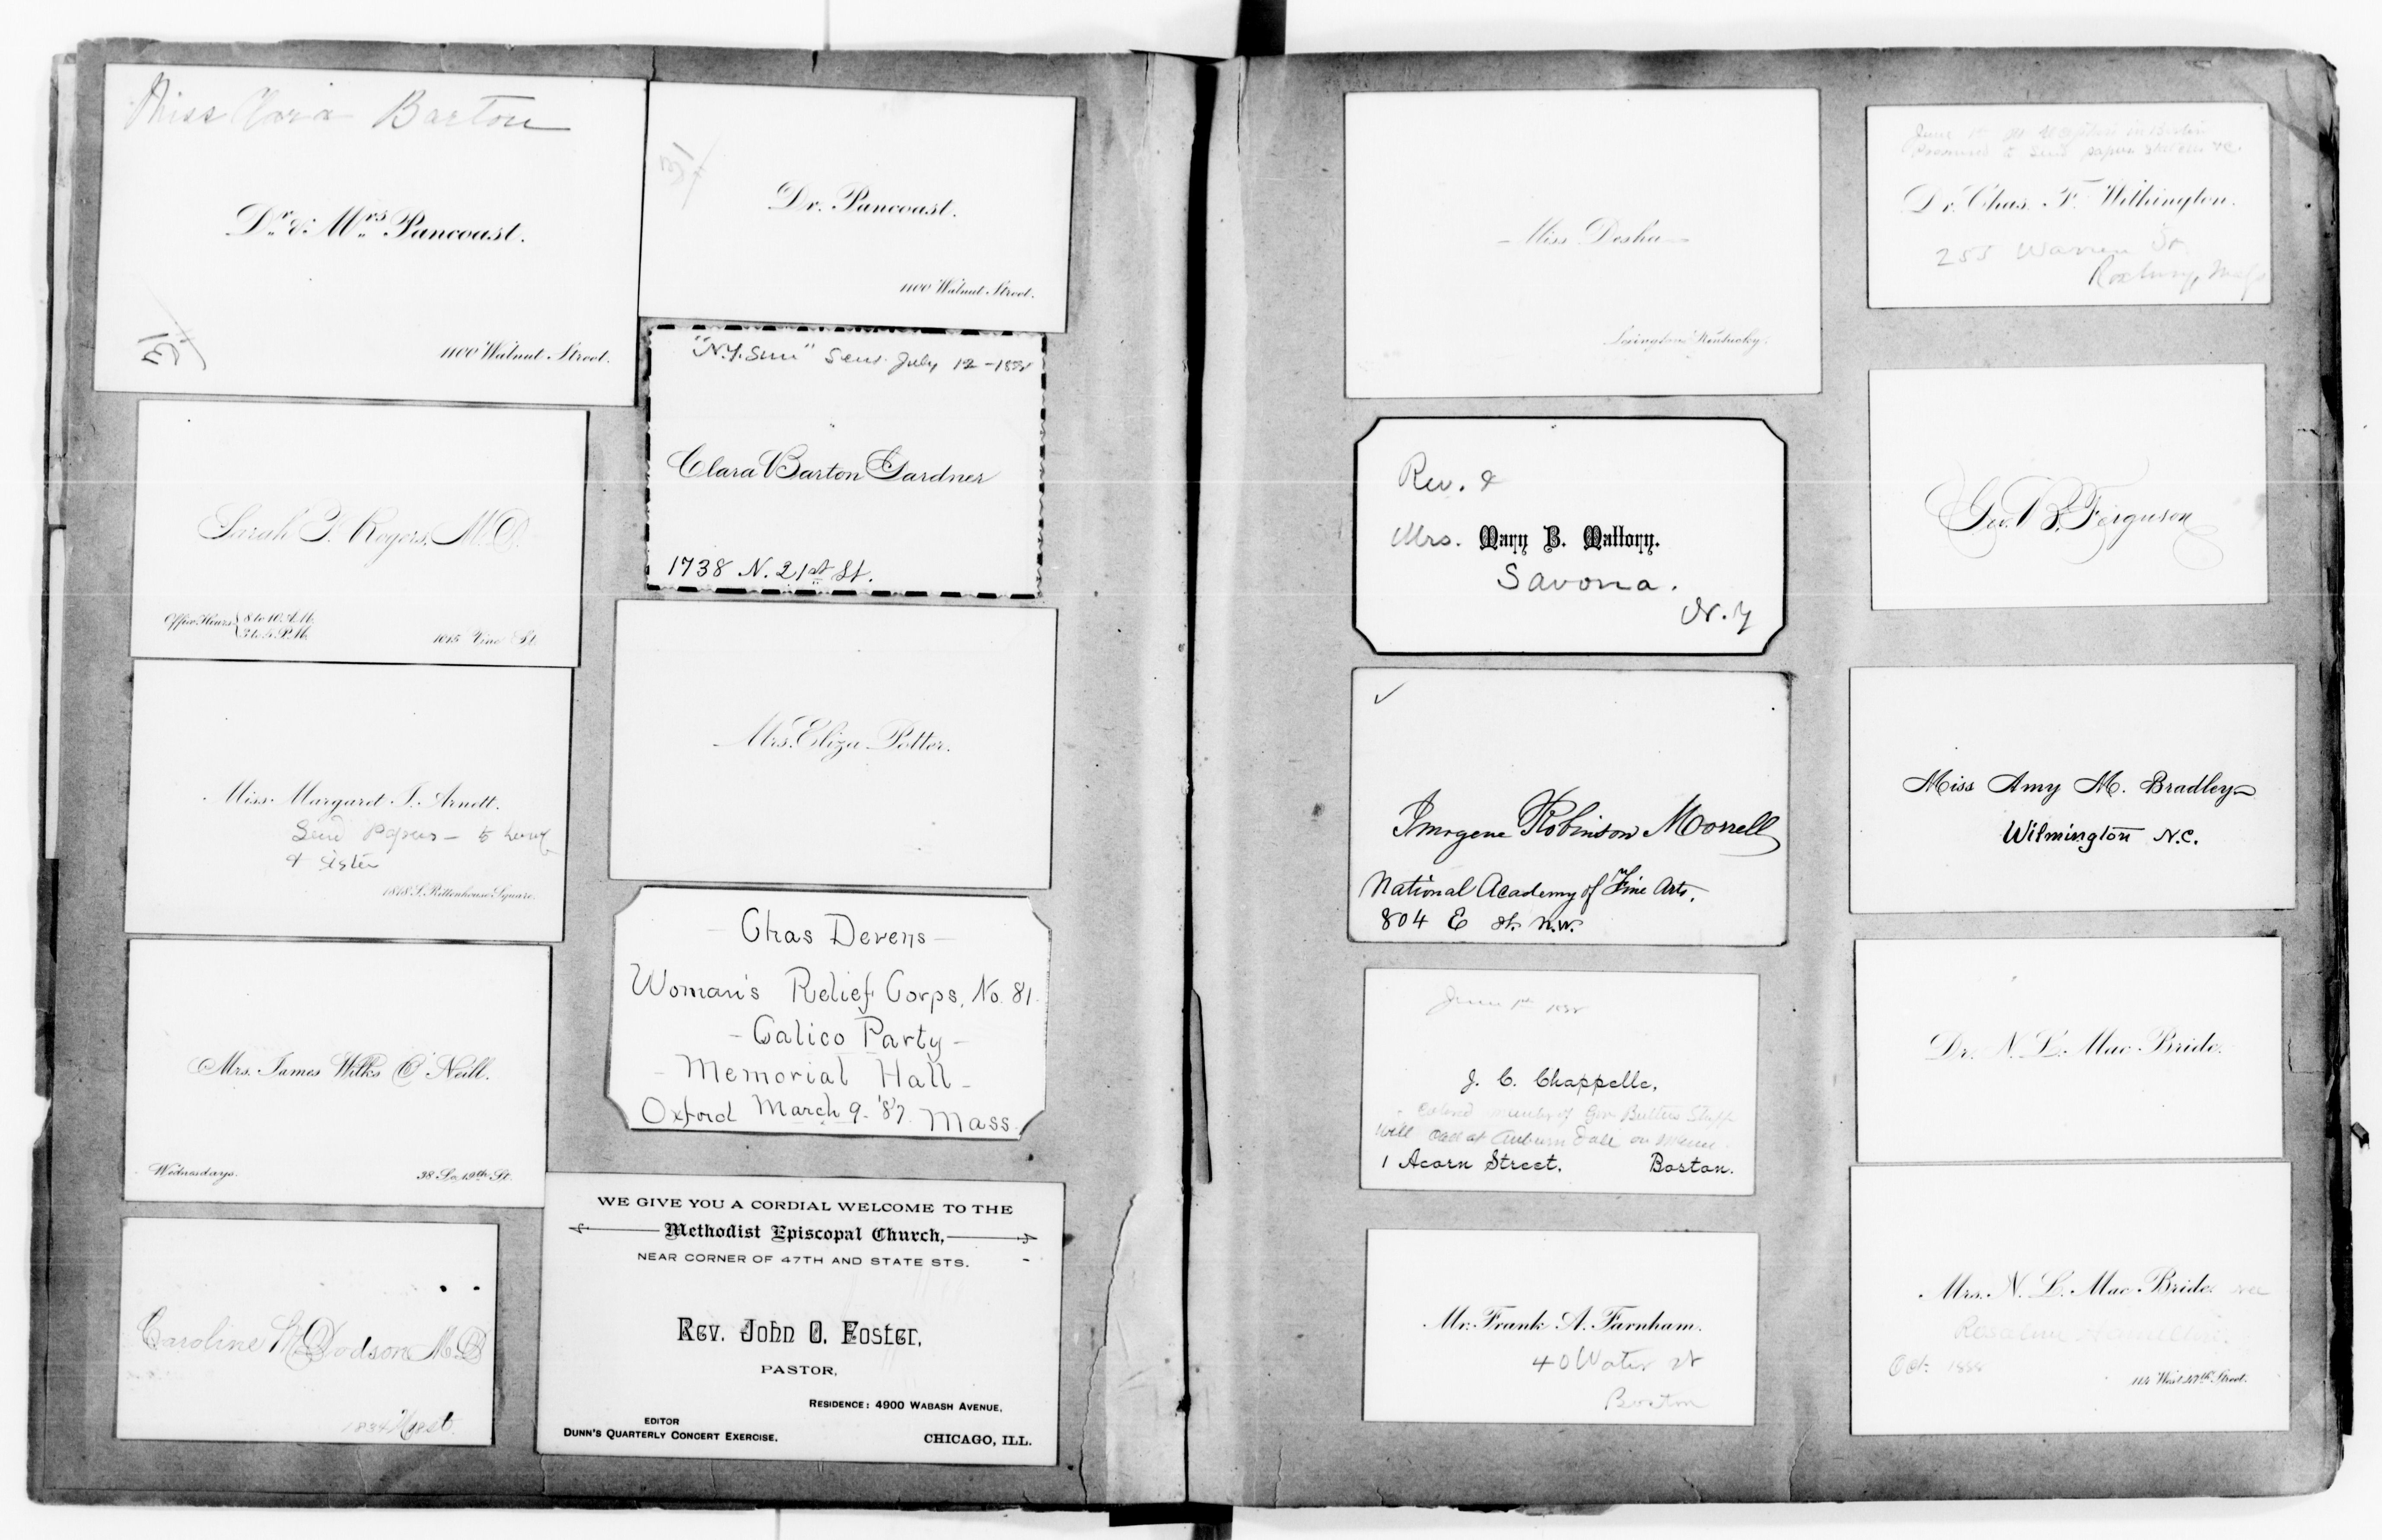 Miss Clara Barton
Dr. & Mrs. Pancoast.
1100 Walnut Street.
Dr. Pancoast.
1100 Walnut Street.
Sarah T. Rogers, M.D.
Office Hours 8 to 10 A.M.
3 to 5 P.M.
1015 Vine St.
"N.Y. Sun" sent July 12 - 1888
Clara Barton Gardner
1738 N. 21st St.
Miss Margaret T. Arnett.
Send Papers - to
& sister
1818 S. Rittenhouse Square.
Mrs. Eliza Potter.
Mrs. James Wilks O'Neill.
Wednesdays.
38 So. 19th St.
- Chas Devens -
Woman's Relief Corps, No. 81.
- Calico Party -
- Memorial Hall -
Oxford March 9. '87. Mass.
Caroline M. Dodson M.D.
1834
WE GIVE YOU A CORDIAL WELCOME TO THE
Methodist Episcopal Church,
NEAR CORNER OF 47TH AND STATE STS.
Rev. John O. Foster,
PASTOR,
RESIDENCE: 4900 WABASH AVENUE,
EDITOR
DUNN'S QUARTERLY CONCERT EXERCISE.
CHICAGO, ILL.
Miss Desha
Lexington Kentucky.
Rev. &
Mrs. Mary B. Mallory.
Savona.
N.Y
Imogene Robinson Morrell
National Academy of Fine Arts.
804 E St. N.W.
June 1st 1888
J. C. Chappelle,
member of Gov Butlers Staff
Will call at Auburndale on
1 Acorn Street. Boston.
Mr. Frank A. Farnham.
40 Water St
Boston
June 1st at in Boston
Promised to send papers &c.
Dr. Chas. F. Withington.
255 Warren St.
Roxbury, Mass
Geo. B. Ferguson
Miss Amy M. Bradley
Wilmington N.C.
Dr. N. L. Mac Bride.
Mrs. N. L. Mac Bride. nee
Rosaline
Oct. 1888
114 West 47th Street.